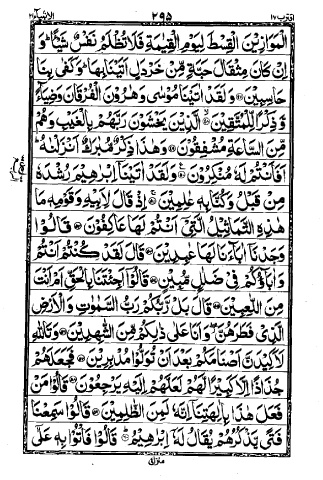 اقترب ١٧ ٢٩٥ الانبیآء ٢١
الْمَوَازِيْنَ الْقِسْطَ لِيَوْمِ الْقِيٰمَةِ فَلَا تُظْلَمُ نَفْسٌ شَيْـًٔا ؕ وَ
اِنْ كَانَ مِثْقَالَ حَبَّةٍ مِّنْ خَرْدَلٍ اَتَيْنَا بِهَا ؕ وَكَفٰى بِنَا
حٰسِبِيْنَ ۞ وَلَقَدْ اٰتَيْنَا مُوْسٰى وَهٰرُوْنَ الْفُرْقَانَ وَضِيَآءً
وَّذِكْرًا لِّلْمُتَّقِيْنَ ۞ الَّذِيْنَ يَخْشَوْنَ رَبَّهُمْ بِالْغَيْبِ وَهُمْ
مِّنَ السَّاعَةِ مُشْفِقُوْنَ ۞ وَهٰذَا ذِكْرٌ مُّبٰرَكٌ اَنْزَلْنٰهُ ؕ
اَفَاَنْتُمْ لَهٗ مُنْكِرُوْنَ ۞ وَلَقَدْ اٰتَيْنَاۤ اِبْرٰهِيْمَ رُشْدَهٗ
مِنْ قَبْلُ وَكُنَّا بِهٖ عٰلِمِيْنَ ۞ اِذْ قَالَ لِاَبِيْهِ وَقَوْمِهٖ مَا
هٰذِهِ التَّمَاثِيْلُ الَّتِيْۤ اَنْتُمْ لَهَا عٰكِفُوْنَ ۞ قَالُوْا
وَجَدْنَاۤ اٰبَآءَنَا لَهَا عٰبِدِيْنَ ۞ قَالَ لَقَدْ كُنْتُمْ اَنْتُمْ
وَاٰبَآؤُكُمْ فِيْ ضَلٰلٍ مُّبِيْنٍ ۞ قَالُوْۤا اَجِئْتَنَا بِالْحَقِّ اَمْ اَنْتَ
مِنَ اللّٰعِبِيْنَ ۞ قَالَ بَلْ رَّبُّكُمْ رَبُّ السَّمٰوٰتِ وَالْاَرْضِ
الَّذِيْ فَطَرَهُنَّ ۖ وَاَنَا عَلٰى ذٰلِكُمْ مِّنَ الشّٰهِدِيْنَ ۞ وَتَاللّٰهِ
لَاَكِيْدَنَّ اَصْنَامَكُمْ بَعْدَ اَنْ تُوَلُّوْا مُدْبِرِيْنَ ۞ فَجَعَلَهُمْ
جُذٰذًا اِلَّا كَبِيْرًا لَّهُمْ لَعَلَّهُمْ اِلَيْهِ يَرْجِعُوْنَ ۞ قَالُوْا مَنْ
فَعَلَ هٰذَا بِاٰلِهَتِنَاۤ اِنَّهٗ لَمِنَ الظّٰلِمِيْنَ ۞ قَالُوْا سَمِعْنَا
فَتًى يَّذْكُرُهُمْ يُقَالُ لَهٗۤ اِبْرٰهِيْمُ ۞ قَالُوْا فَاْتُوْا بِهٖ عَلٰۤى